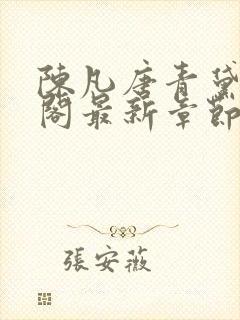 陳凡唐青黛
閣最新章節
張安薇